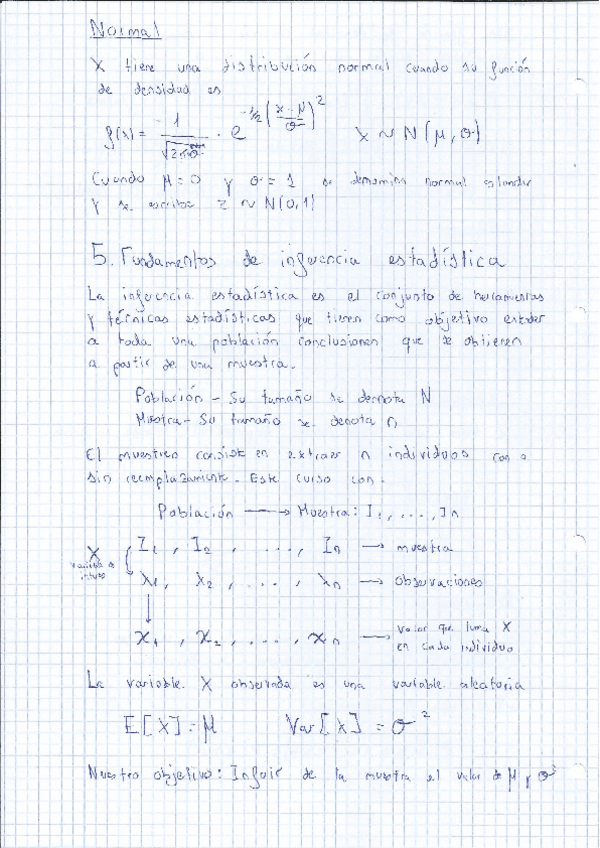 Normal
X tiene una distribución normal cuando su función
de densidad es
f(x) = 1/√2πσ² · e^-1/2(x-μ/σ)^2   X ~ N(μ,σ)
Cuando μ=0 y σ=1 se denomina normal estandar
y se escribe Z ~ N(0,1)
5. Fundamentos de inferencia estadística
La inferencia estadística es el conjunto de herramientas
y técnicas estadísticas que tienen como objetivo extender
a toda una población conclusiones que se obtienen
a partir de una muestra.
Población - Su tamaño se denota N
Muestra - Su tamaño se denota n
El muestreo consiste en extraer n individuos con o
sin reemplazamiento. Este curso con.
Población → Muestra: I1, ..., In
X I1, I2, ..., In → muestra
variable interes X1, X2, ..., Xn → observaciones
x1, x2, ..., xn → valor que toma X
en cada individuo
La variable X observada es una variable aleatoria
E[X] = μ   Var[X] = σ²
Nuestro objetivo: Inferir de la muestra el valor de μ y σ²